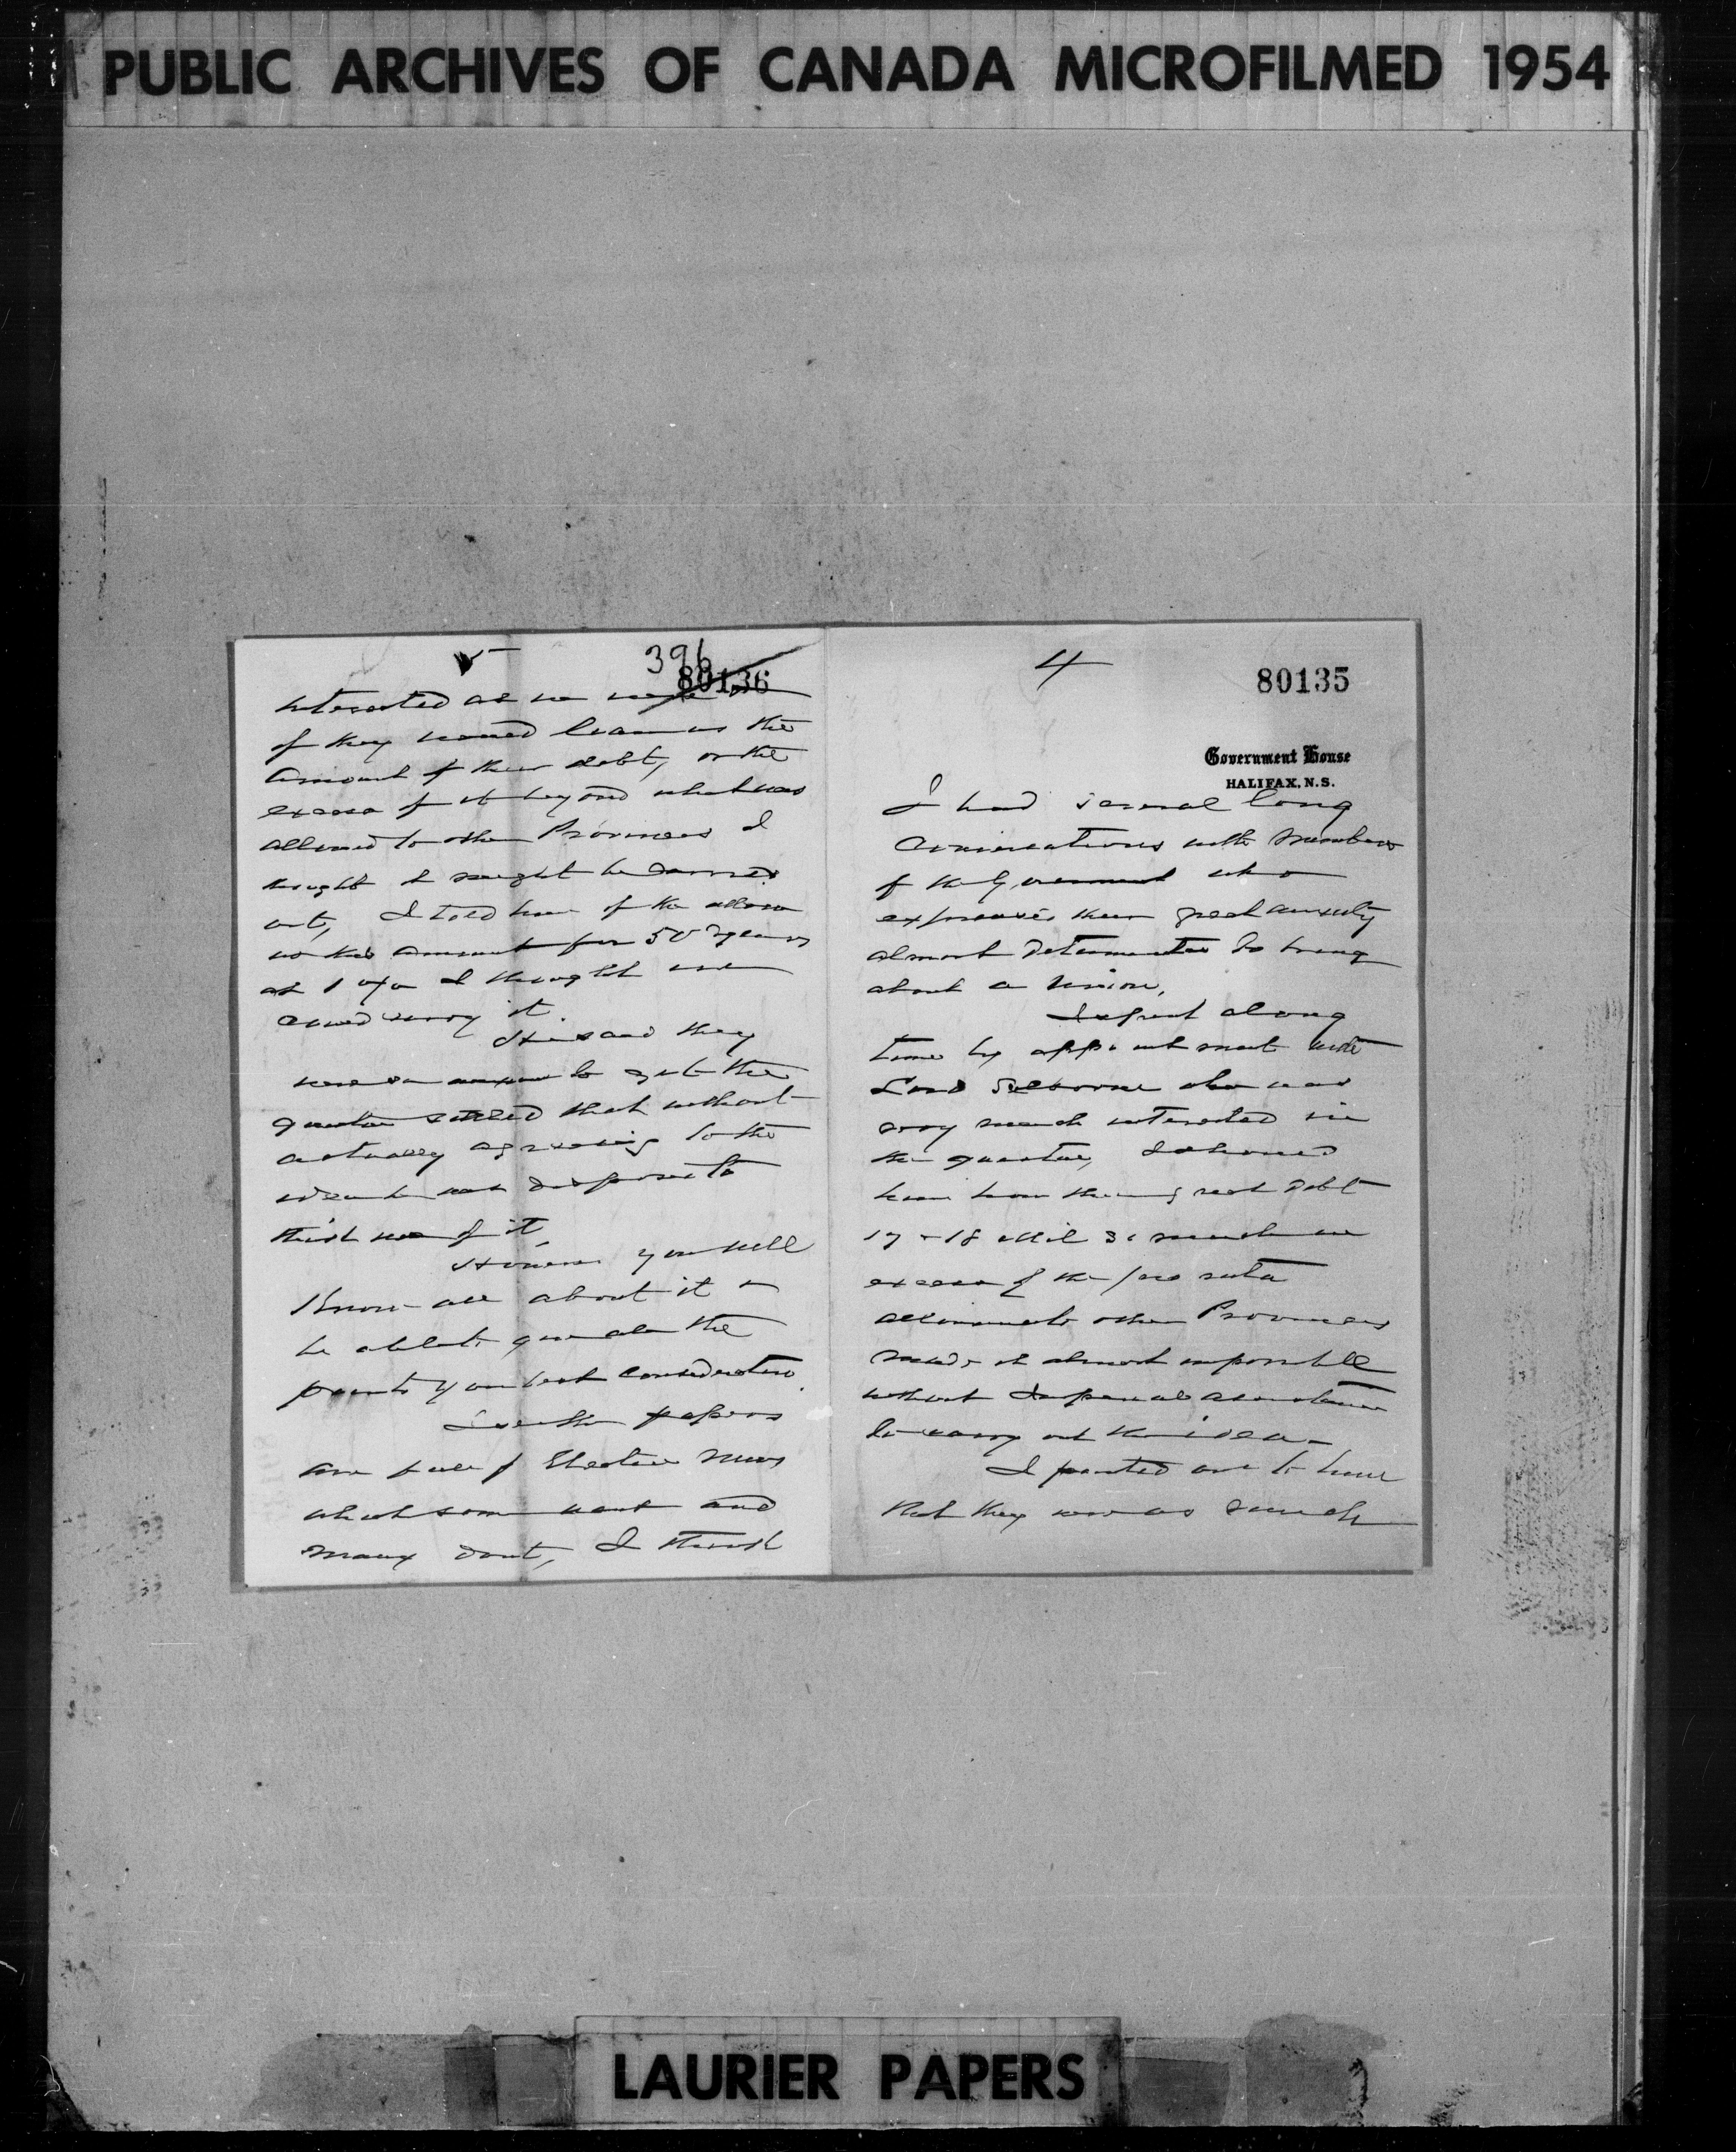 PUBLIC ARCHIVES OF CANADA MICROFILMED 1954
4
80135
Government House
HALIFAX, N.S.
I had several long
Conversations with Members
of the Government who
expressed their great anxiety
almost determination to bring
about a Union.
I spent along
time by appointment with
Lord Selborne who was
very much interested in
the question, I showed
him how their great debt
17 or 18 Mil so much in
excess of the pro rata
allowance to other Provinces
made it almost impossible
without Imperial assistance
to carry out the idea -
I pointed out to him
that they were as much
5
396
80136
interested as we were
if they would loan us the
amount of their debt, or the
excess of it beyond what was
allowed to other Provinces I
thought it might be carried
out, I told him if the allow
us this amount for 50 years
at 1 o/o I thought we
could carry it.
He said they
were so anxious to get the
question settled that without
actually agreeing to the
idea he was disposed to
think well of it,
However you will
Know all about it &
be able to give all the
points your best consideration.
I see the papers
are full of Election News
which some want and
many dont, I think
LAURIER PAPERS